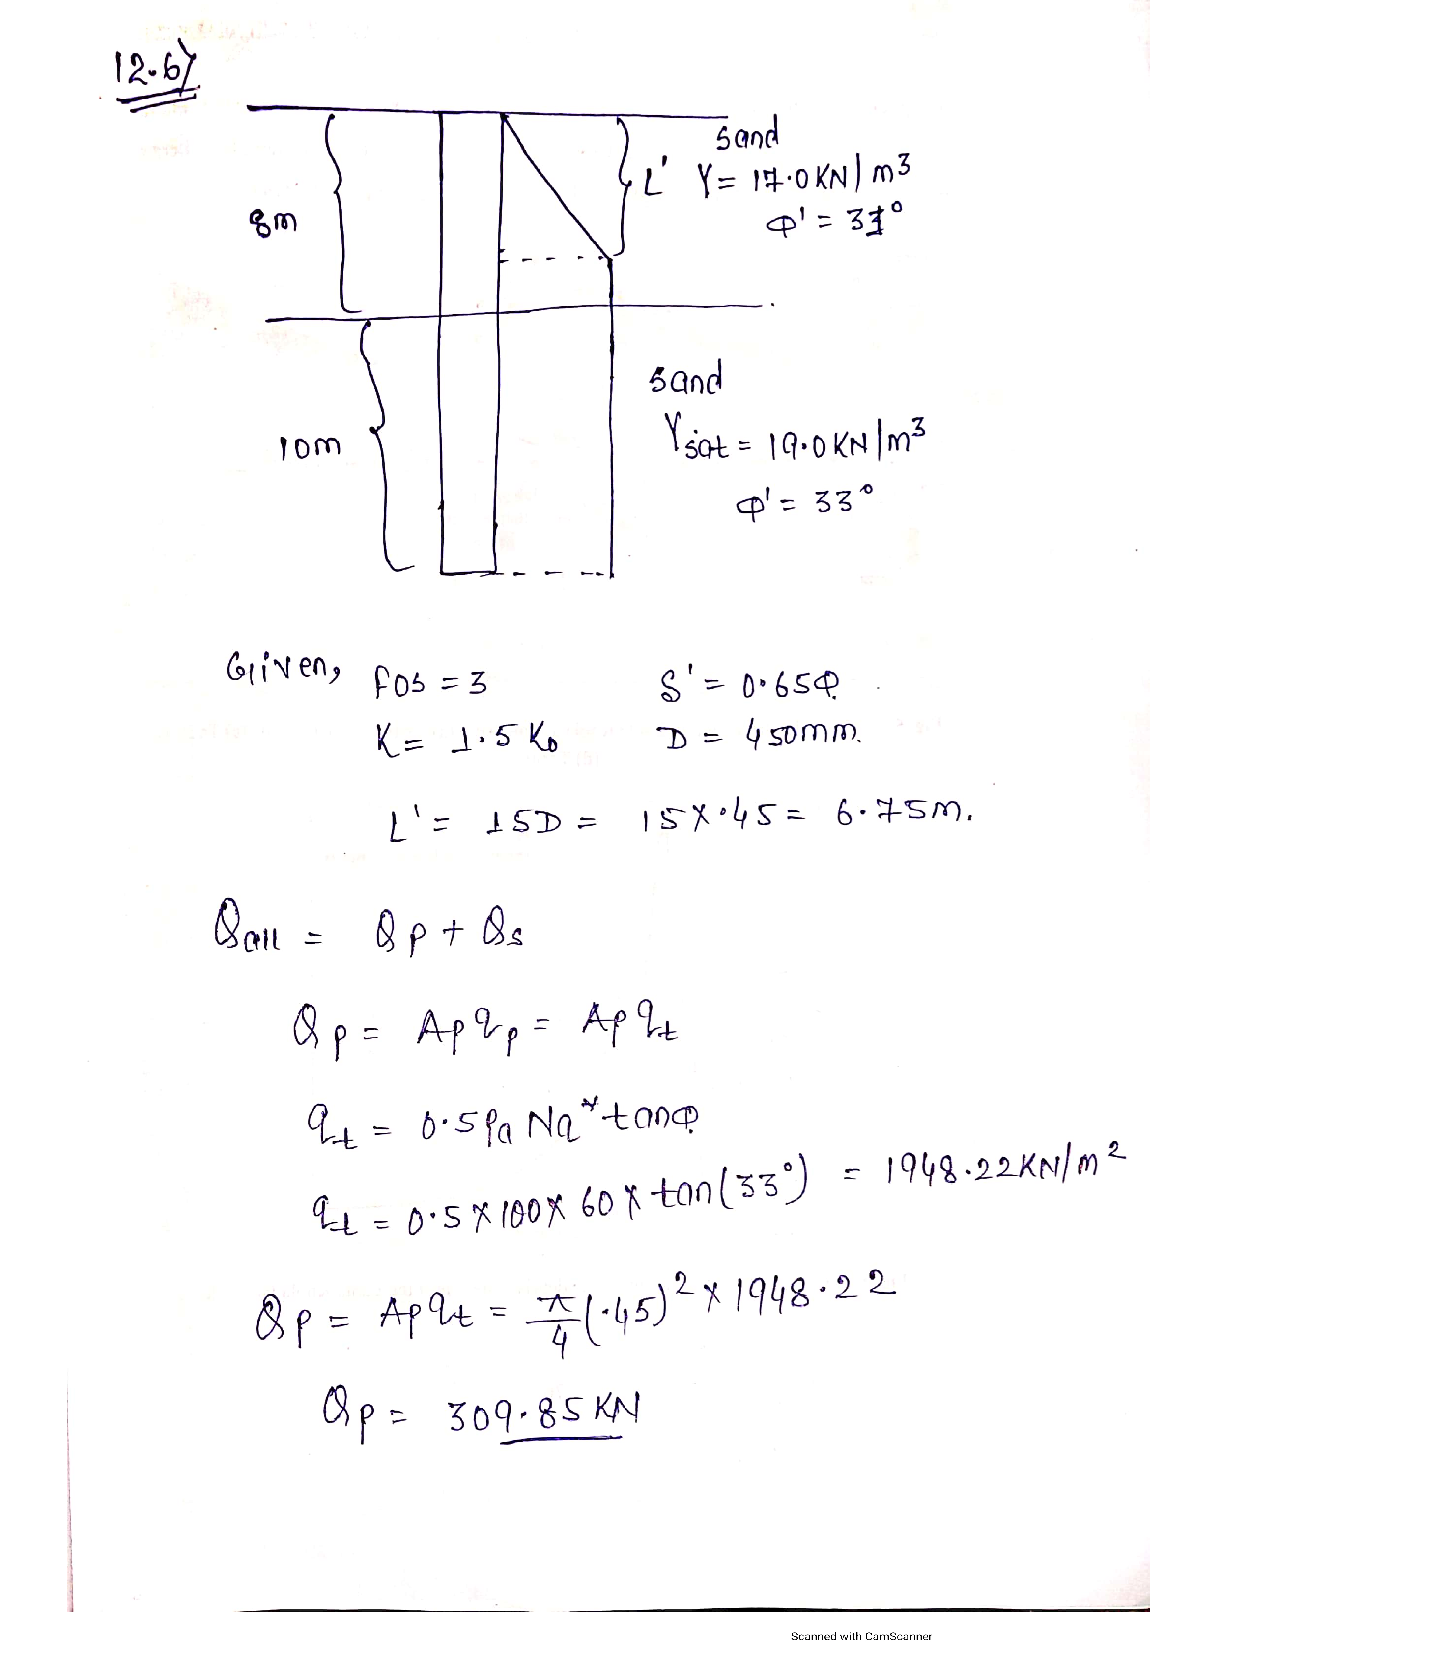 12.6)
sand
L' γ = 17.0 KN/m3
8m
φ' = 31°
sand
γsat = 19.0 KN/m3
10m
φ' = 33°
Given, FOS = 3 δ' = 0.65φ
K = 1.5 K0 D = 450mm.
L' = 15D = 15 × .45 = 6.75m.
Qall = Qp + Qs
Qp = Ap qp = Ap qt
qt = 0.5 Pa Nq* tanφ
qt = 0.5 × 100 × 60 × tan(33°) = 1948.22 KN/m2
Qp = Ap qt = π/4 (.45)2 × 1948.22
Qp = 309.85 KN
Scanned with CamScanner